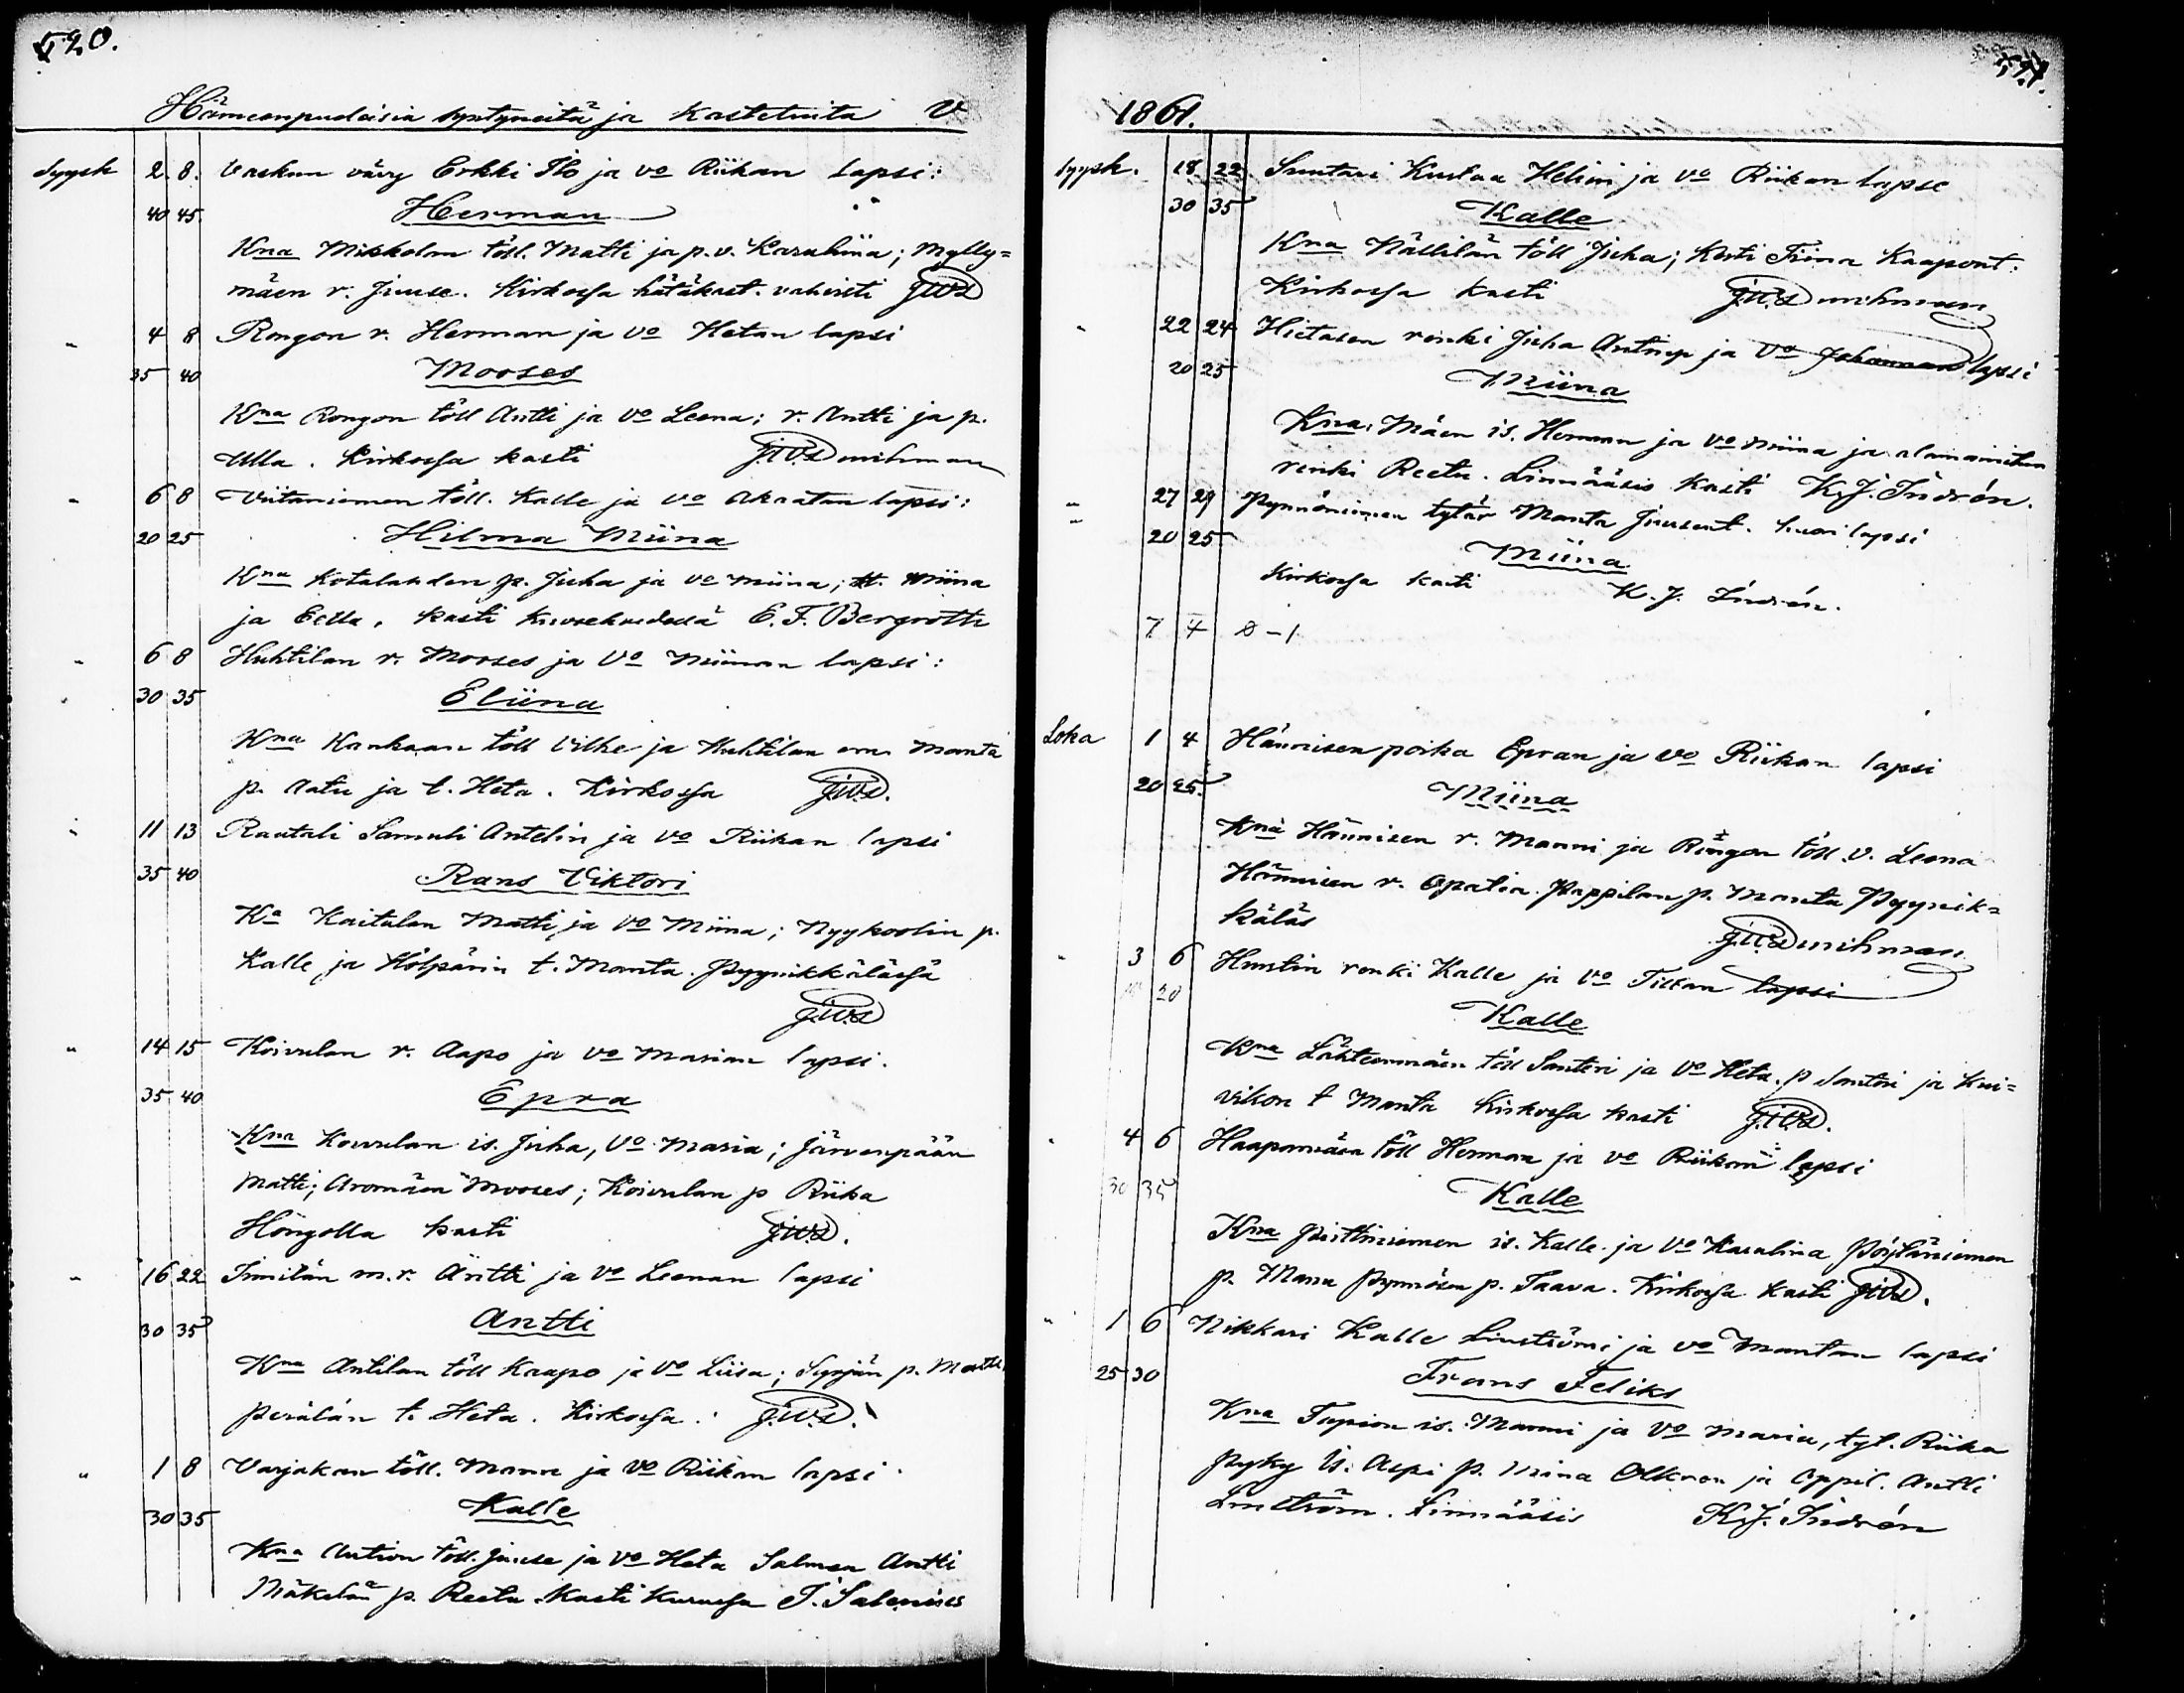 520.
Hämeenpuolaisia syntyneitä ja kastetuita V.
Syysk 2 8. Vaskun vävy Erkki Ilo ja vo Riikan lapsi:
40 45 Herman
Kna Mikkolan töll. Matti ja p.v. Karuliina; Mylly=
mäen r. Juuse. Kirkossa hätäkast. vahvisti J.W.S
" 4 8 Rongon r. Herman ja vo Hetan lapsi
35 40 Mooses
Kna Rongon töll Antti ja vo Leena; r. Antti ja p.
Ulla. Kirkossa kasti J.W.S
" 6 8 Viitaniemen töll. Kalle ja vo Akaatan lapsi:
20 25 Hilma Miina
Kna Kotalahden p. Juha ja vo Miina; tt. Miina
ja Eella. kasti E. F. Bergroth
" 6 8 Huhtilan r. Mooses ja vo Miinan lapsi:
30 35 Eliina
Kna Kankaan töll Vilhe ja Huhtilan em. Manta
p. Aatu ja t. Heta. Kirkossa J.W.S.
" 11 13 Rautali Samuli Antelin ja vo Riikan lapsi
35 40 Rans Viktori
Ka Kaitalan Matti ja vo Miina; Nyykoolin p.
Kalle ja Kolpärin t. Manta. Pyynikkälässä
J.W.S
" 14 15 Koivulan r. Aapo ja vo Marian lapsi.
35 40 Epra
Kna Koivulan is. Juha, vo Maria; Järvenpään
Matti; Aromäen Mooses; Koivulan p Riika
Höngolla kasti J.W.S.
" 16 22 Similän m.r. Antti ja vo Leenan lapsi
30 35 Antti
Kna Antilan töll Kaapo ja vo Liisa; Syrjän p. Matti
Perälän t. Heta. Kirkossa. J.W.S.
" 1 8 Varjakan töll. Mannu ja vo Riikan lapsi
30 35 Kalle
Kna Aution töll. Juuse ja vo Heta Salmen Antti
Mäkelän p. Reetu. Kasti Kurussa J. Salenius
521.
1861.
Syysk. 18 22 Suutari Kustaa Helin ja vo Riikan lapse
30 35 Kalle
Kna Nällilän töll Juha; Kerti Tiina Kaapont.
Kirkossa kasti J.W.S
" 22 24 Hietasen renki Juha Antinp ja vo Johannan lapsi
20 25 Miina
Kna. Mäen is. Herman ja vo Miina ja alamainitun
renki Reetu. Linnääsis kasti K. J. Indrén.
" 27 29 Pynnöniemen tytär Manta Juusent. huori lapsi
20 25 Miina
Kirkossa kasti K. J. Indrén.
7 4 0 - 1
Loka 1 4 Hännisen poika Epran ja vo Riikan lapsi
20 25. Miina
Kna Hännisen r. Manni ja Rongon töll. v. Leena
Hännisen r. Opatia. Pappilan p. Manta Pyynik=
käläs J.W.S
" 3 6 Huntin renki Kalle ja vo Tillan lapsi
20 Kalle
Kna Lähteenmäen töll Santeri ja vo Heta. p Santeri ja Kui=
vikon t Manta Kirkossa kasti J.W.S.
" 4 6 Haapamäen töll Herman ja vo Riikan lapsi
30 35 Kalle
Kna Pirttiniemen is. Kalle ja vo Karuliina Pöytäniemen
p. Mannu Pynnösen p. Taava. Kirkossa kasti J.W.S.
" 1 6 Nikkari Kalle Linströmi ja vo Mantan lapsi
25 30 Frans Feliks
Kna Tapion is. Manni ja vo Maria, tyt. Riika
Pyky is. Aspi p. Miina Olkron ja Oppil. Antti
Linström. Linnääsis K. J. Indrén